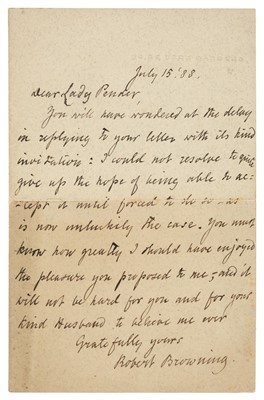 July 15. '88.
Dear Lady Pender,
You will have wondered at the delay
in replying to your letter with its kind
invitation: I could not resolve to quite
give up the hope of being able to ac-
-cept it until forced to do so - as
is now unluckily the case. You must
know how greatly I should have enjoyed
the pleasure you proposed to me, and it
will not be hard for you and for your
kind Husband to believe me ever
Gratefully yours
Robert Browning.